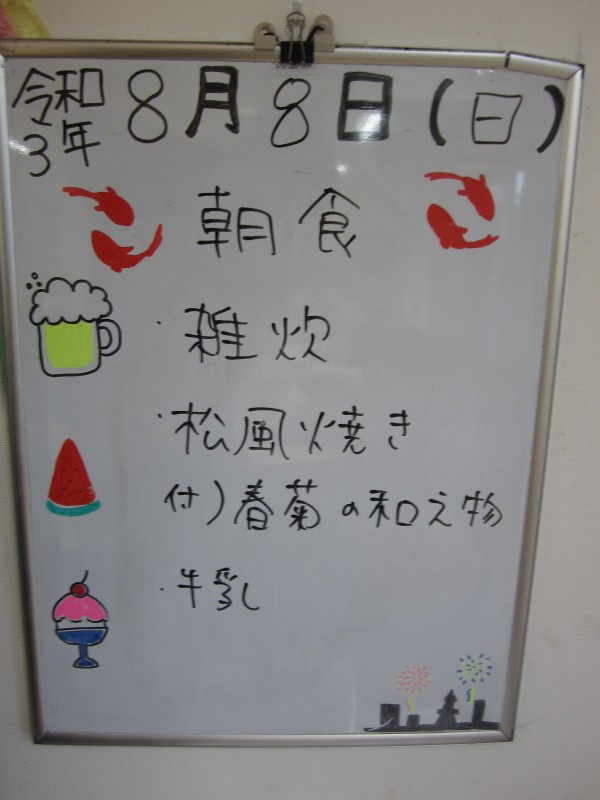 令和3年 8月8日(日)
朝食
・雑炊
・松風焼き
付)春菊の和え物
・牛乳